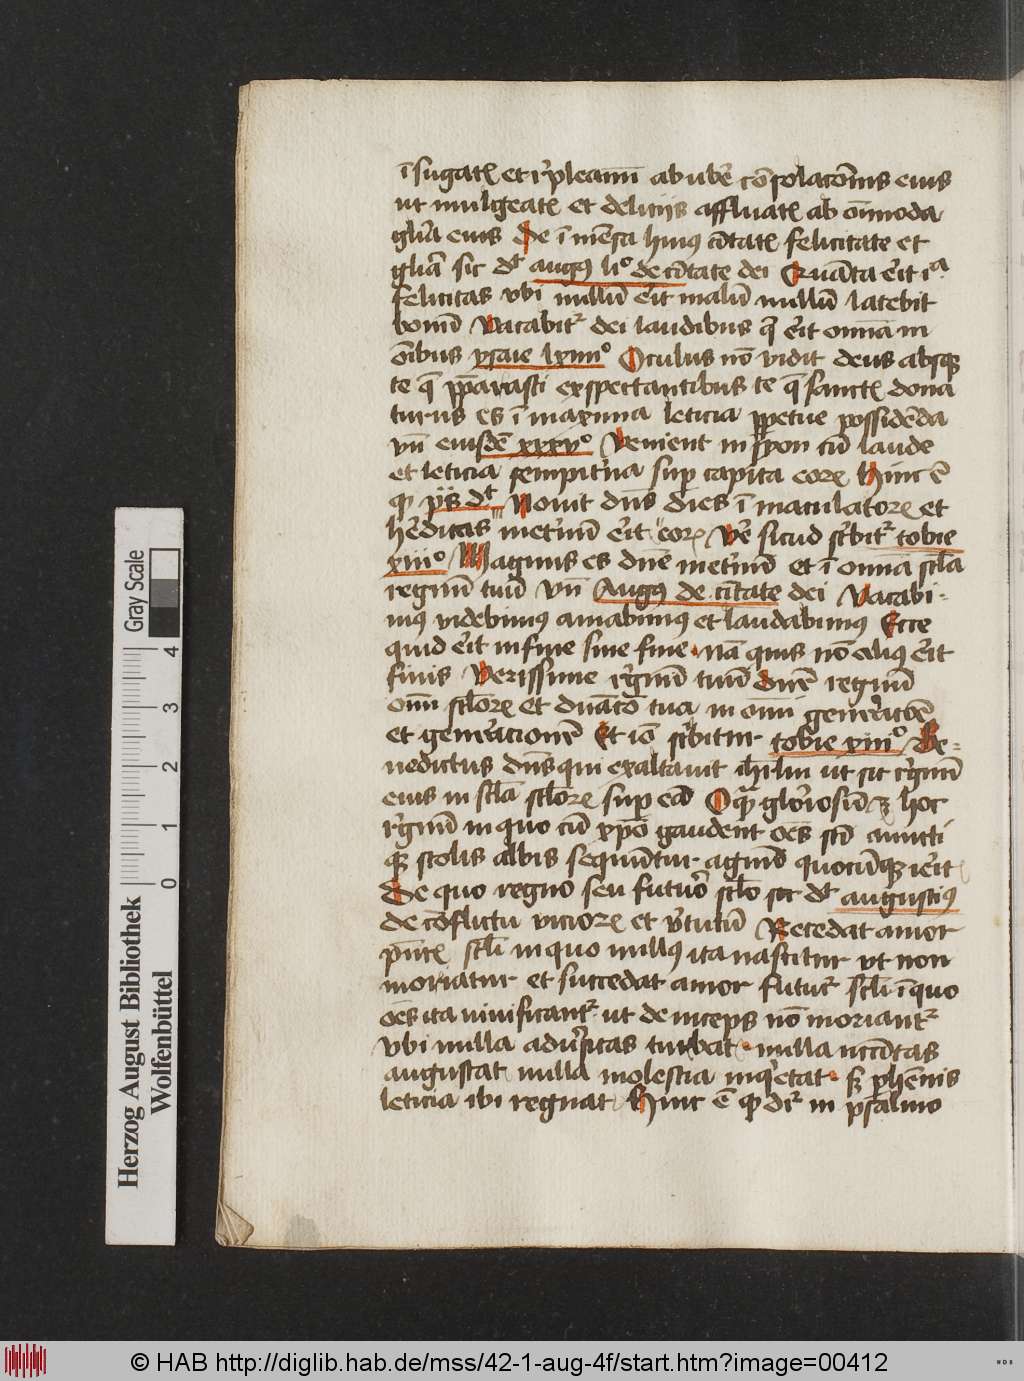 ī sugatꝭ et r̄pleamī ab ubē cōsolacōnis eius
ut mulgeatꝭ et deliciis affluatꝭ ab ōnimoda
gl̄ia eius De īmēsa huius cītatꝭ felicitate et
gl̄ia sic dt augꝰ li° de cītate dei Quāta ēit ia
felicitas vbi nullū ēit malū nullū latebit
bonū vacabitr dei laudibus q̄ ēit omnia in
ōibus ysaie lxiiii° Oculus nō vidit deus absqꝫ
te q̄ p̄parasti exspectantibus te q̄ sanctꝭ dona
turus es ī maxima leticia ꝑpetue possidēda
vn̄ eiusdē xxxv° Venient in syon cū laude
et leticia sempit̄na sup capita eoꝝ Hinc ē
qꝫ p̄s dt Nouit dn̄s dies īmaculatoꝝ et
h̄editas inet̄nū ēit eoꝝ Vn̄ sicud sc̄bitr tobie
xiii° Magnus es dn̄e inet̄nū et ī omnia sc̄la
regnū tuū vn̄ Augꝰ de cītate dei Vacabi-
mꝰ videbimus amabimus et laudabimus Ecce
quid ēit in fine sine fine nā quis nō aliꝰ ēit
finis Verissime r̄gnū tuū dn̄e regnū
om̄i sc̄loꝝ et dn̄acō tua in om̄i gen̄racōe
et gen̄racionē Et iō sc̄bitur tobie xiii° Be-
nedictus dn̄s qui exaltauit ih̄rlm ut sit r̄gnū
eius in sc̄la sc̄loꝝ sup eā O q̄ gl̄oriosū ꝫ hoc
r̄gnū in quo cū xp̄o gaudent oēs sc̄i amicti
qꝫ stolis albis sequūtur agnū quocūqꝫ iēit
De quo regno seu futuro sc̄lo sic dt augustiꝰ
de cōflictu vicioꝝ et v̄tutū Recedat amor
p̄ntꝭ sc̄li in quo nullꝰ ita nascitur vt non
moriatur et succedat amor futur̄ sc̄li ī quo
oēs ita viuificantr ut deinceps nō moriantr
vbi nulla adu̇̄sitas turbat nulla nc̄citas
angustat nulla molestia inq̄etat sꝫ ꝑhēnis
leticia ibi regnat Hinc ē qꝫ dr̄ in psalmo
Herzog August Bibliothek
Wolfenbüttel
Gray Scale
0 1 2 3 4
© HAB http://diglib.hab.de/mss/42-1-aug-4f/start.htm?image=00412